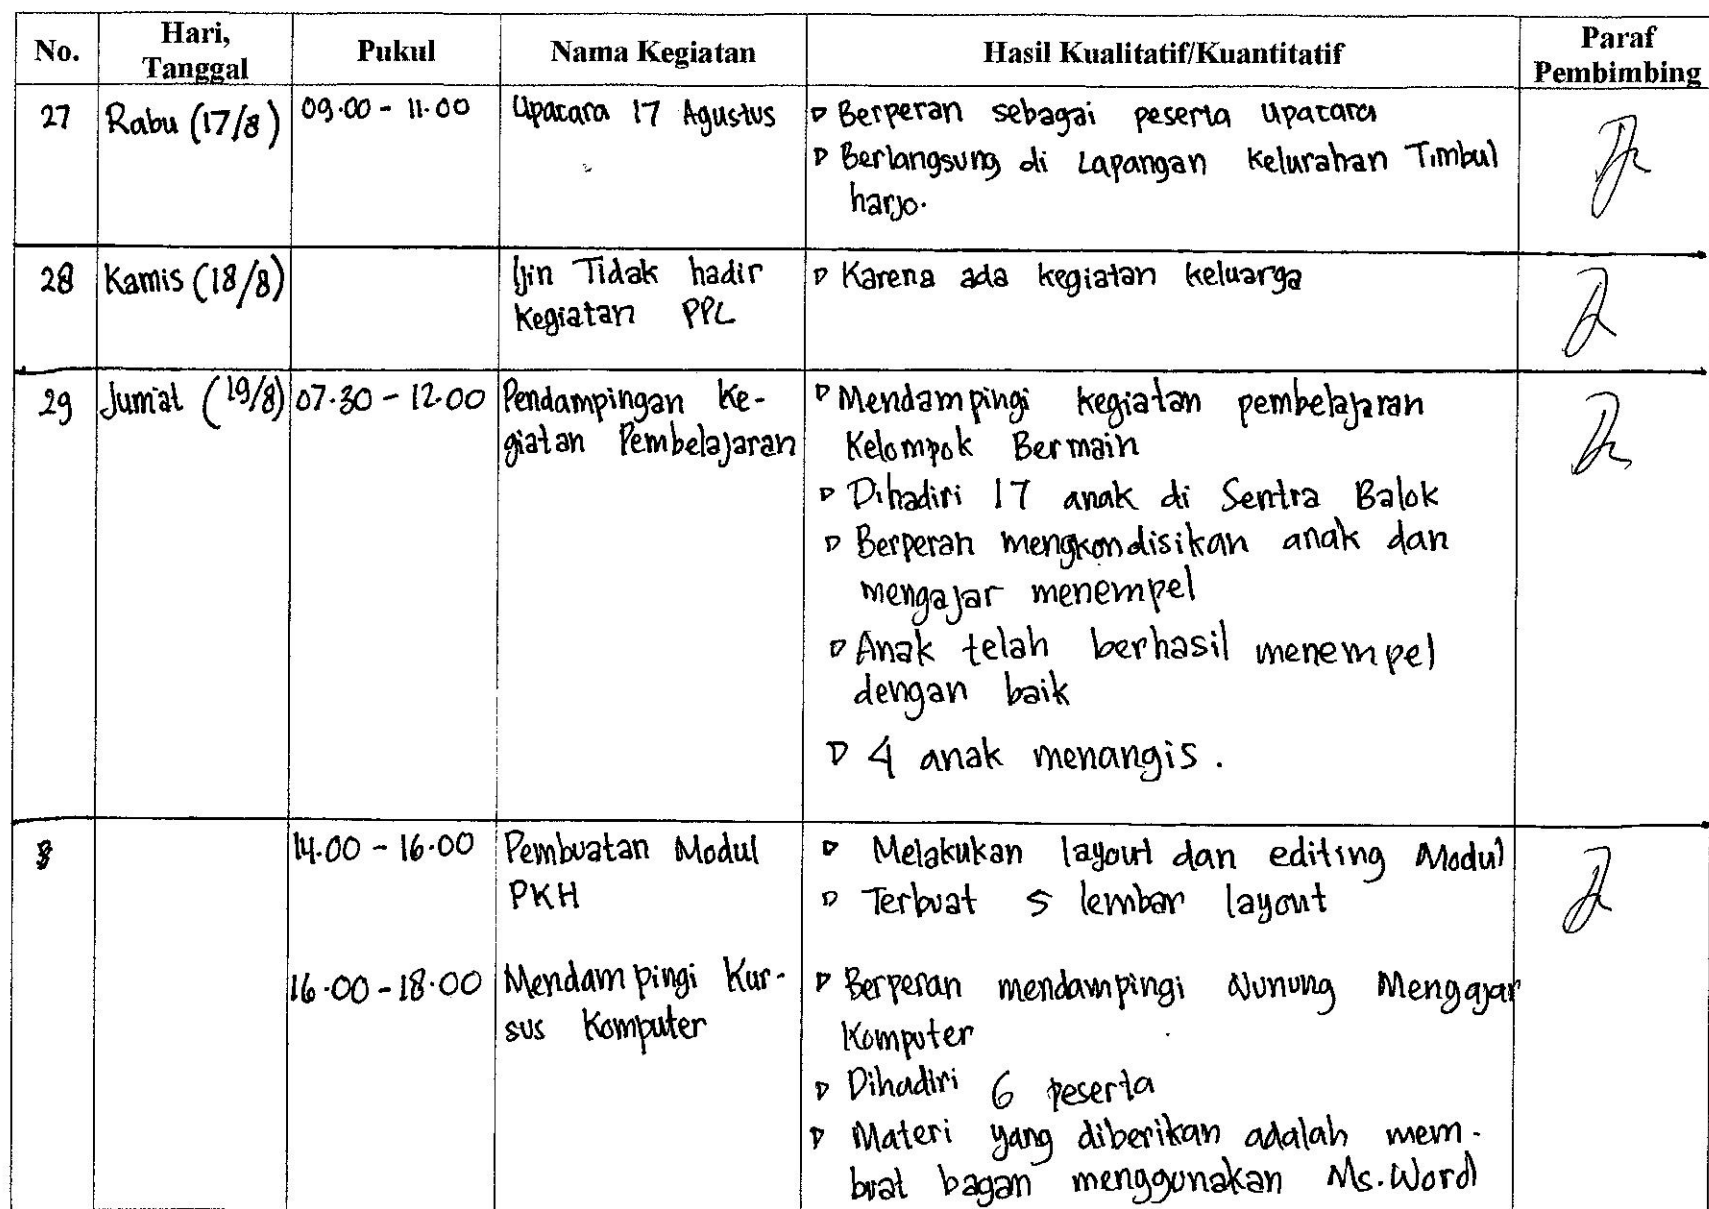 No. Hari, Tanggal Pukul Nama Kegiatan Hasil Kualitatif/Kuantitatif Paraf Pembimbing
27 Rabu (17/8) 09.00 - 11.00 Upacara 17 Agustus ▷ Berperan sebagai peserta upacara
▷ Berlangsung di Lapangan Kelurahan Timbul
harjo.
28 Kamis (18/8) Ijin Tidak hadir ▷ Karena ada kegiatan keluarga
Kegiatan PPL
29 Jum'at (19/8) 07.30 - 12.00 Pendampingan Ke- ▷ Mendampingi kegiatan pembelajaran
giatan Pembelajaran Kelompok Bermain
▷ Dihadiri 17 anak di Sentra Balok
▷ Berperan mengkondisikan anak dan
mengajar menempel
▷ Anak telah berhasil menempel
dengan baik
▷ 4 anak menangis.
14.00 - 16.00 Pembuatan Modul ▷ Melakukan layout dan editing Modul
PKH ▷ Terbuat 5 lembar layout
16.00 - 18.00 Mendampingi Kur- ▷ Berperan mendampingi Nunung Mengajar
sus Komputer Komputer
▷ Dihadiri 6 peserta
▷ Materi yang diberikan adalah mem-
buat bagan menggunakan Ms. Word